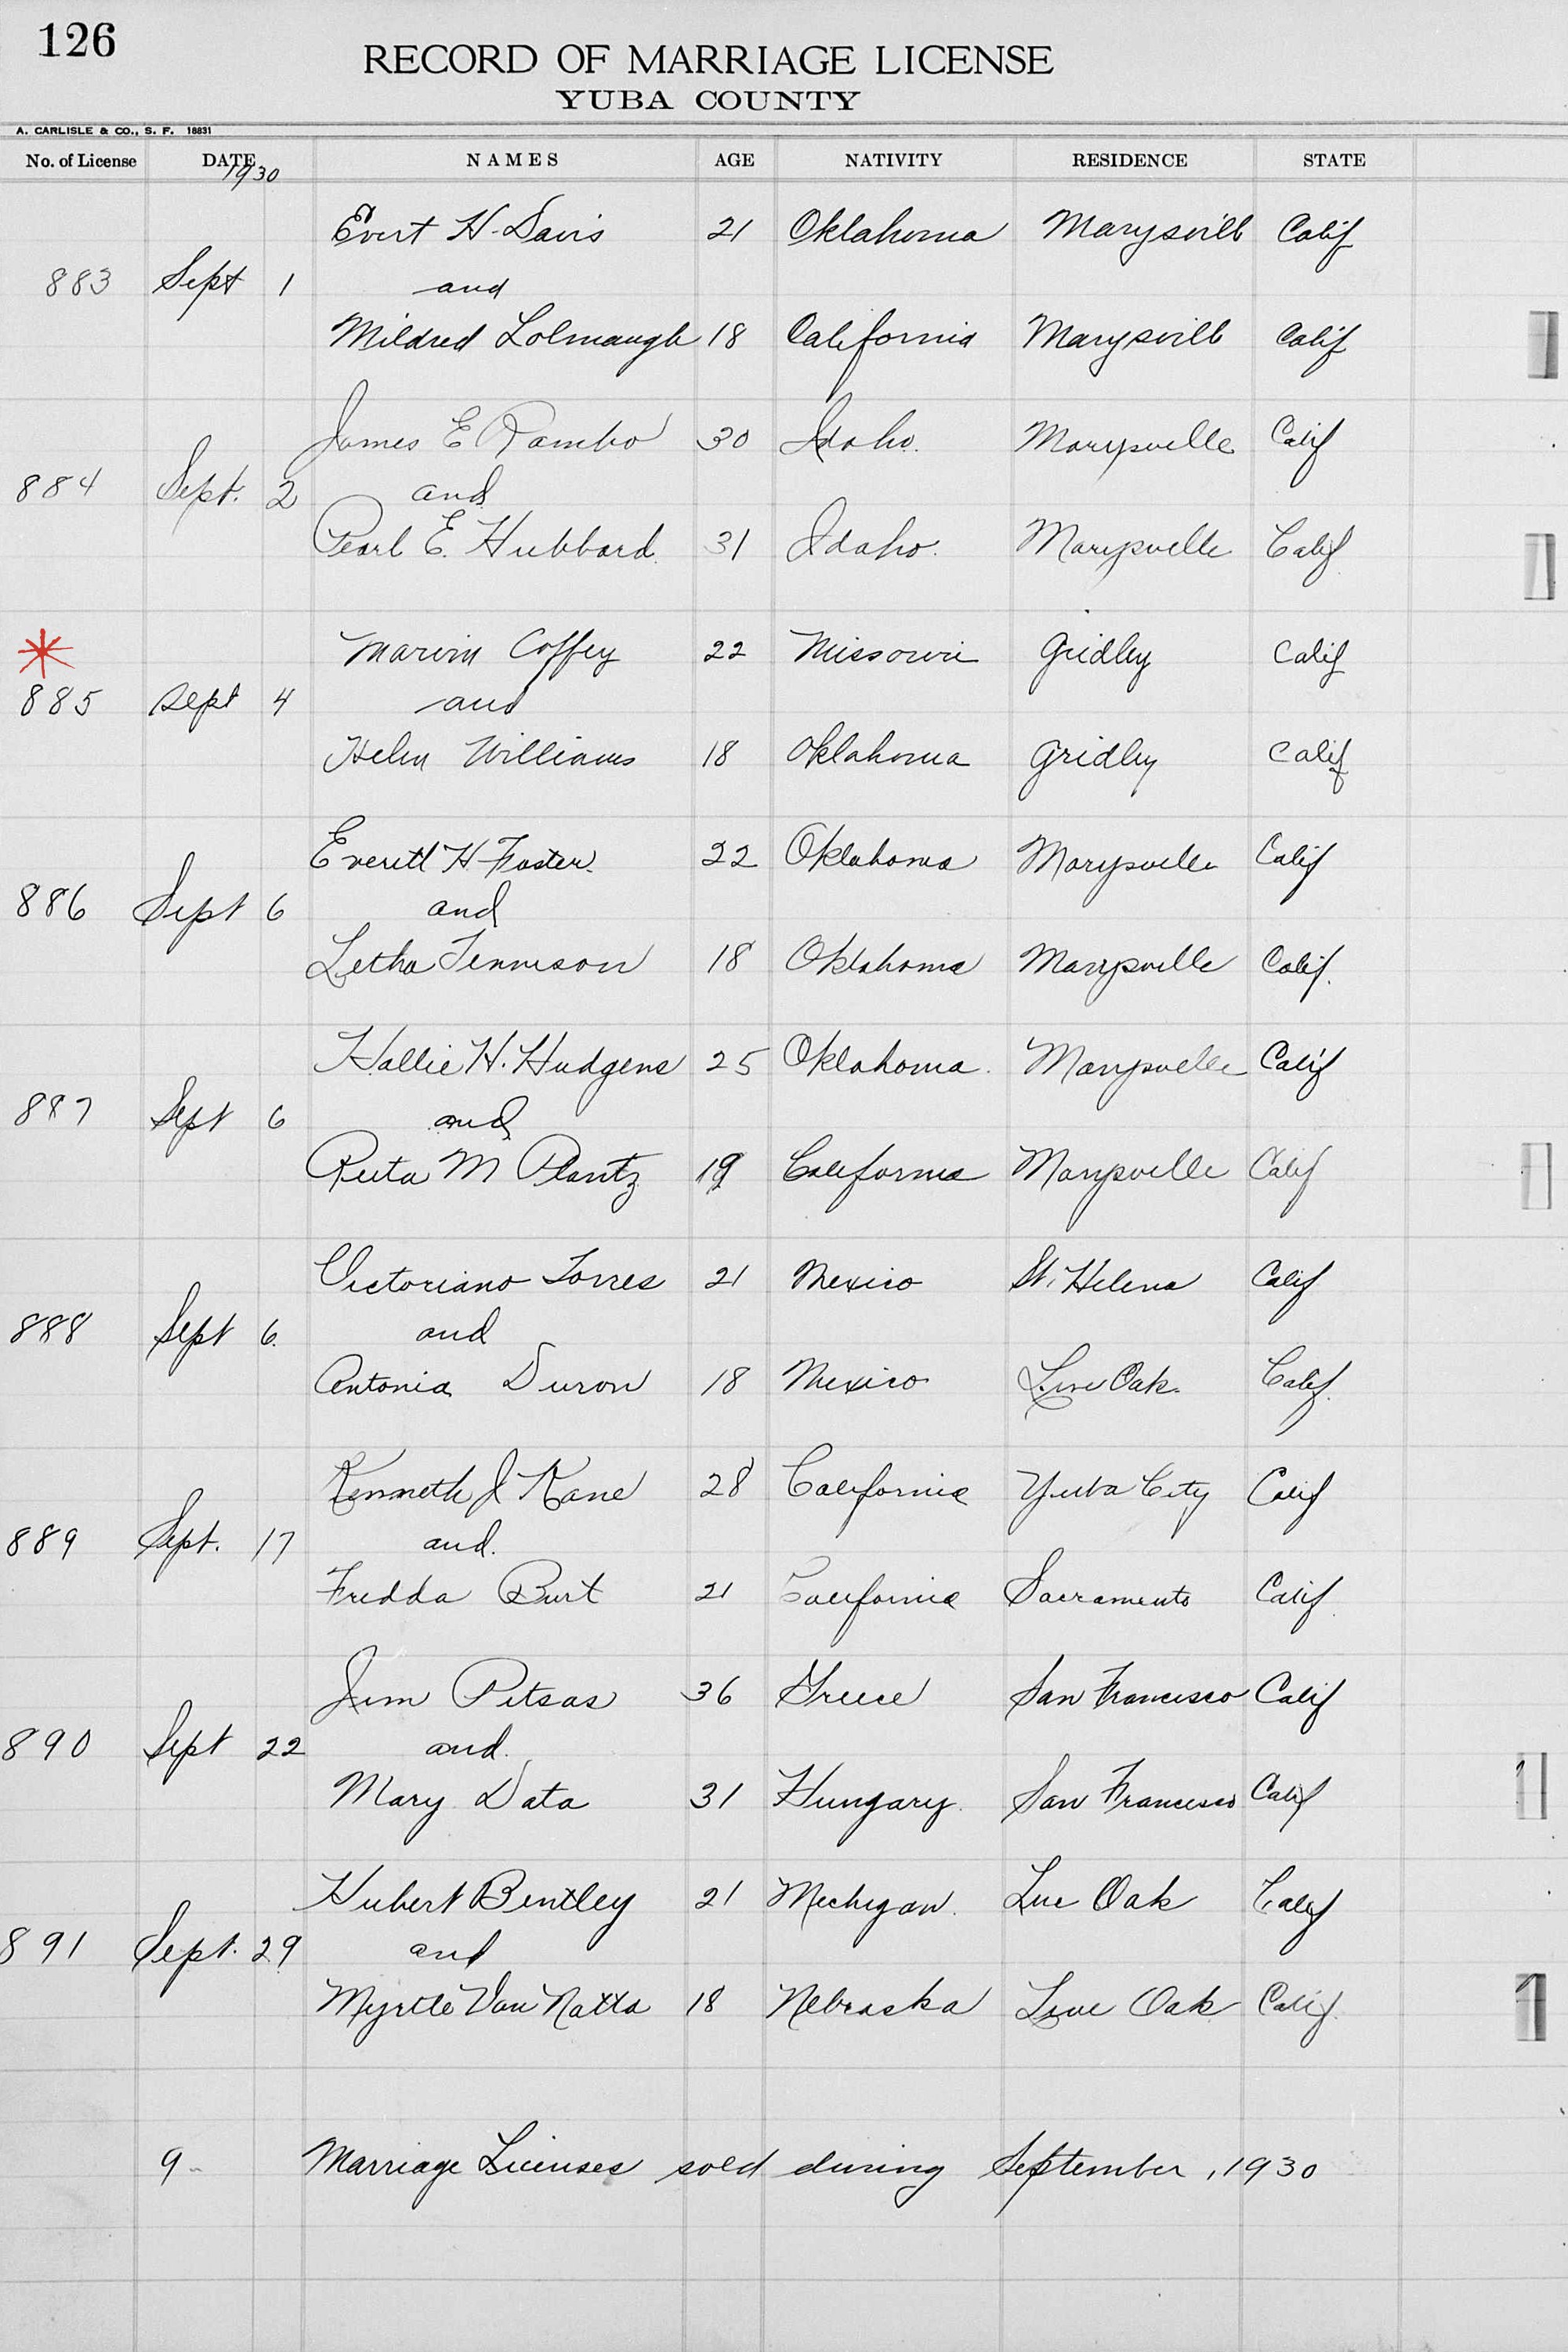 126
RECORD OF MARRIAGE LICENSE
YUBA COUNTY
A. CARLISLE & CO., S. F. 18831
No. of License DATE NAMES AGE NATIVITY RESIDENCE STATE
1930
Evert H. Davis 21 Oklahoma Marysvill Calif
883 Sept 1 and
Mildred Lolmaugh 18 California Marysvill Calif
James E Rambo 30 Idaho. Marysville Calif
884 Sept. 2 and
Pearl E. Hubbard. 31 Idaho. Marysville Calif
*
Marvin Coffey 22 Missouri Gridley Calif
885 Sept 4 and
Helen Williams 18 Oklahoma Gridley Calif
Everett H Foster. 22 Oklahoma Marysville Calif
886 Sept 6 and
Letha Tennison 18 Oklahoma Marysville Calif.
Hallie H. Hudgens 25 Oklahoma. Marysville Calif
887 Sept 6 and
Reita M Plantz 19 California Marysville Calif
Victoriano Torres 21 Mexico St. Helena Calif
888 Sept 6. and
Antonia Duron 18 Mexico Live Oak. Calif.
Kenneth J Kane 28 California Yuba City Calif
889 Sept. 17 and.
Fredda Burt 21 California Sacramento Calif.
Jim Pitsas 36 Greece San Francisco Calif
890 Sept 22 and.
Mary Data 31 Hungary. San Francisco Calif
Hubert Bentley 21 Michigan. Live Oak Calif
891 Sept. 29 and
Myrtle Van Natta 18 Nebraska Live Oak Calif.
9- Marriage Licenses sold during September, 1930